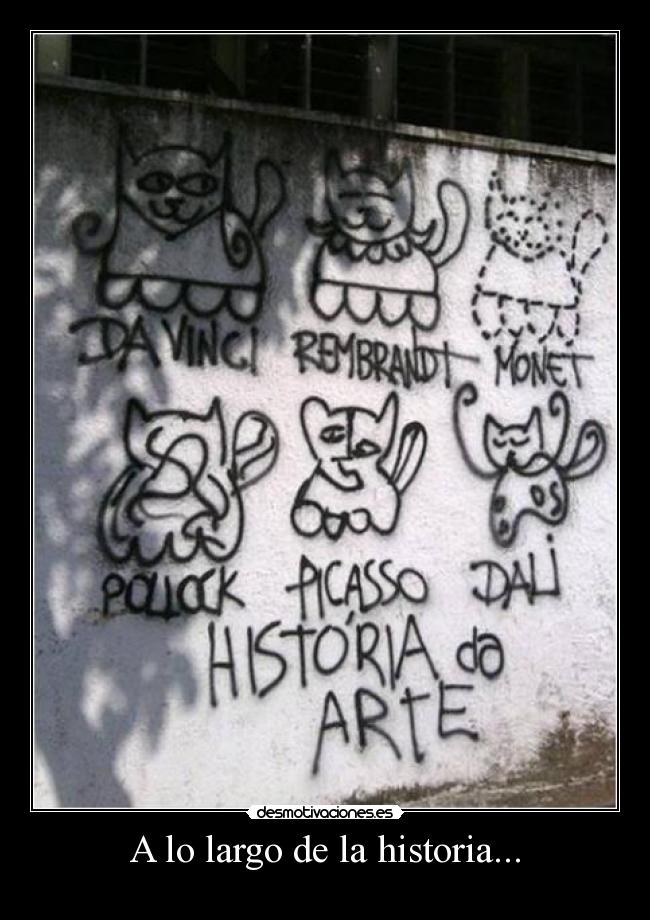 DA VINCI REMBRANDT MONET
POLLOCK PICASSO DALI
HISTÓRIA da
ARTE
desmotivaciones.es
A lo largo de la historia...